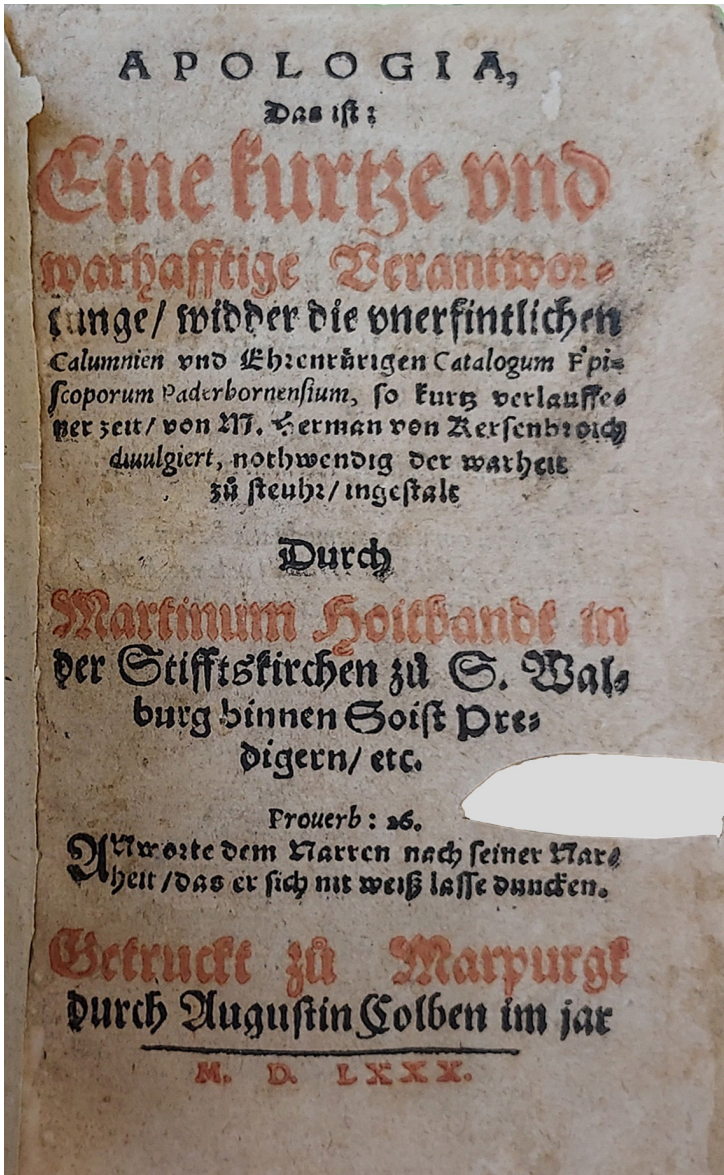 APOLOGIA,
Das ist:
Eine kurtze vnd
warhafftige Verantwor⸗
tunge/ widder die vnerfintlichen
Calumnien vnd Ehrenrürigen Catalogum Epi⸗
scoporum Paderbornensium, so kurtz verlauffe⸗
ner zeit/ von M. Herman von Kersenbroich
diuulgiert, nothwendig der warheit
zů steuhr/ ingestalt
Durch
Martinum Hoitbandt in
der Stifftskirchen zů S. Wal⸗
burg binnen Soist Pre⸗
digern/ etc.
Prouerb: 26.
ANtworte dem Narren nach seiner Nar⸗
heit/das er sich nit weiß lasse duncken.
Getruckt zů Marpurgk
durch Augustin Colben im jar
M. D. LXXX.